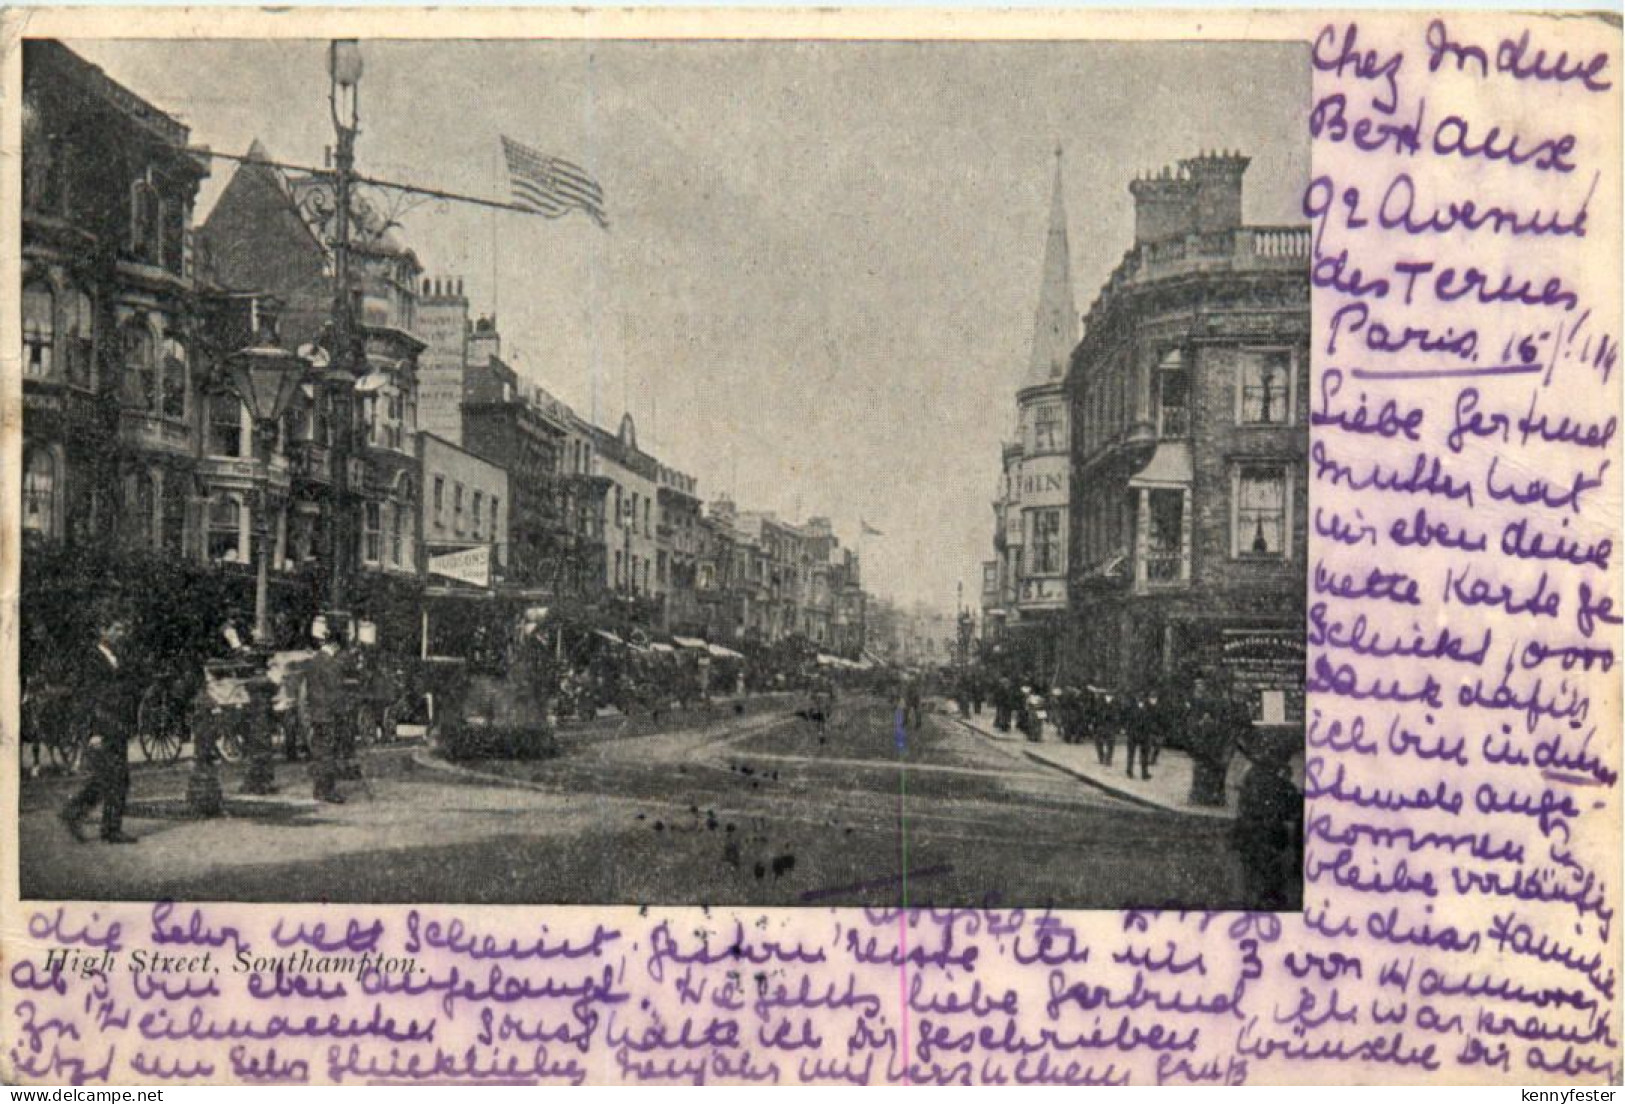 Chez Mdme
Bertaux
92 Avenue
des Ternes,
Paris. 15/1 14
Liebe Gertrud
Mutter hat
mir eben deine
nette Karte ge
schickt,
Dank dafür,
ich bin in dieser
Stunde ange-
kommen u
bleibe vorläufig
in dieser Familie
die sehr nett scheint, gestern reiste ich um 3 von Hannover
ab u bin eben angelangt. Wie gehts, liebe Gertrud, ich war krank
zu Weihnachten sonst hätte ich Dir geschrieben wünsche Dir aber
jetzt ein sehr glückliches Neujahr mit herzlichem Gruß
High Street, Southampton.
HUDSON'S
delcampe.net
kennyfester